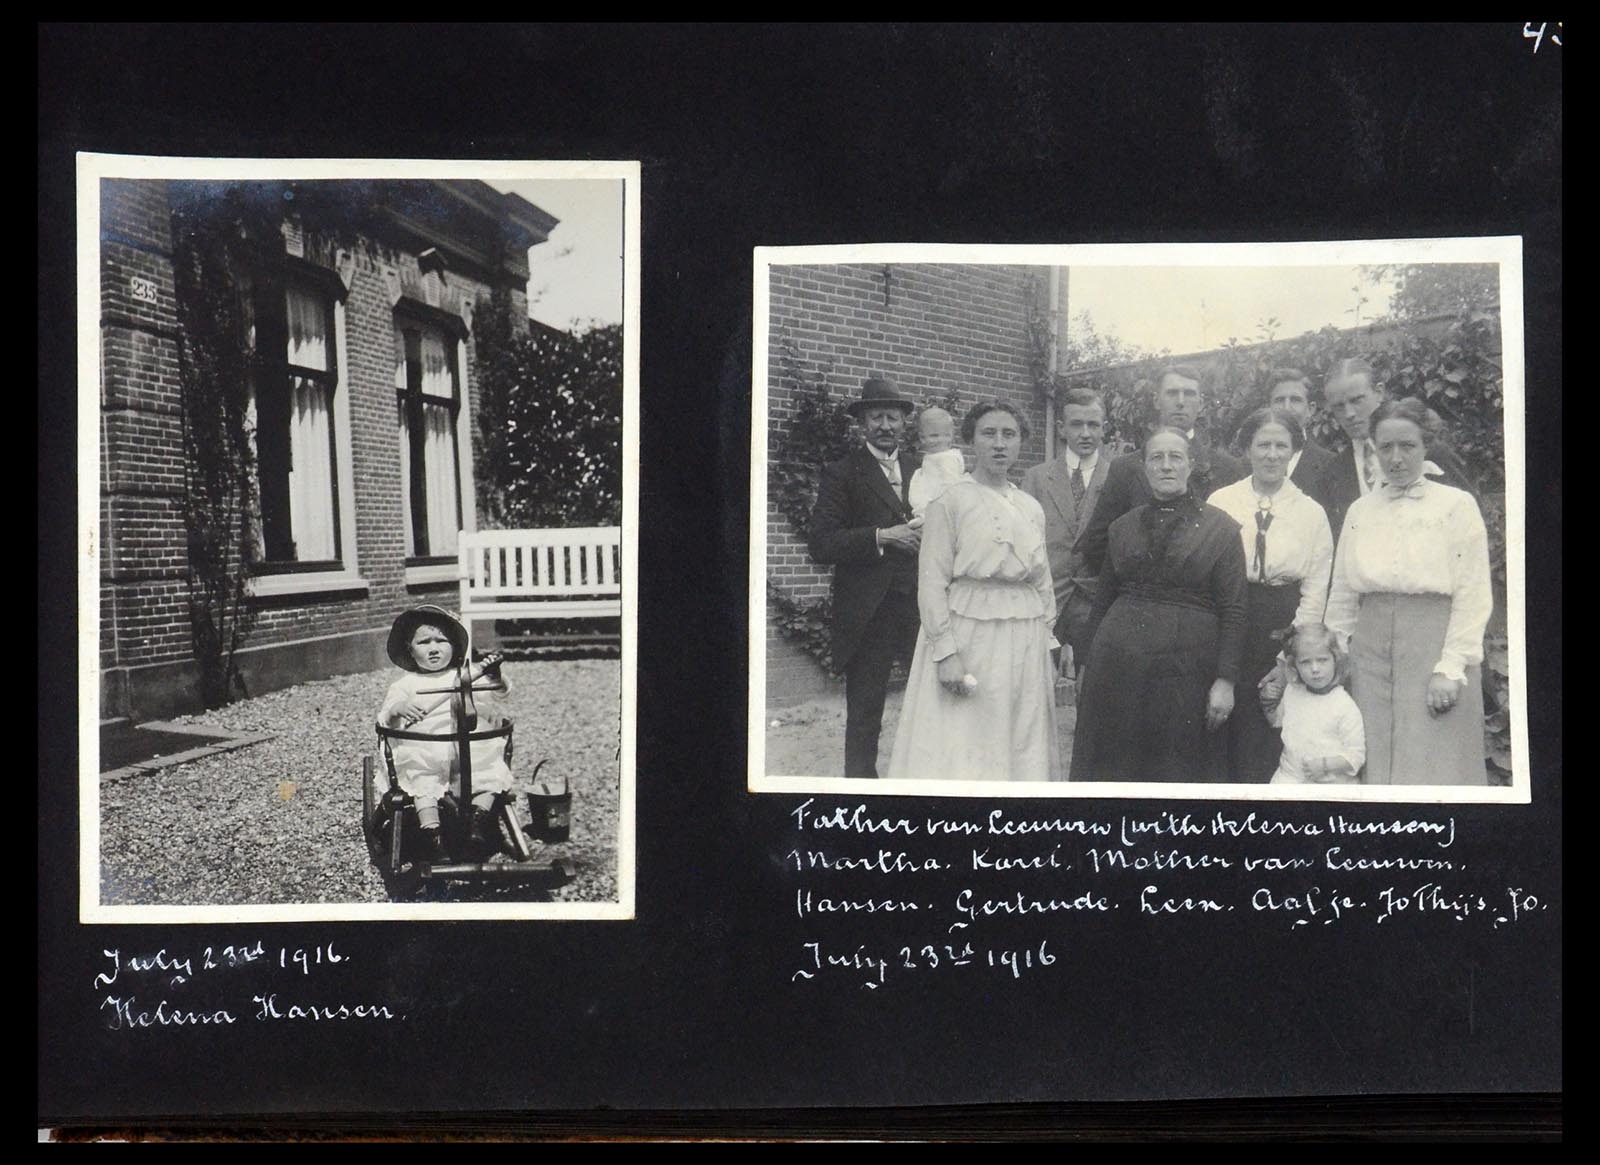 43
235
July 23rd 1916.
Helena Hansen.
Father van Leeuwen (with Helena Hansen)
Martha. Karel. Mother van Leeuwen.
Hansen. Gertrude. Leen. Aaltje. JoThijs. Jo.
July 23rd 1916